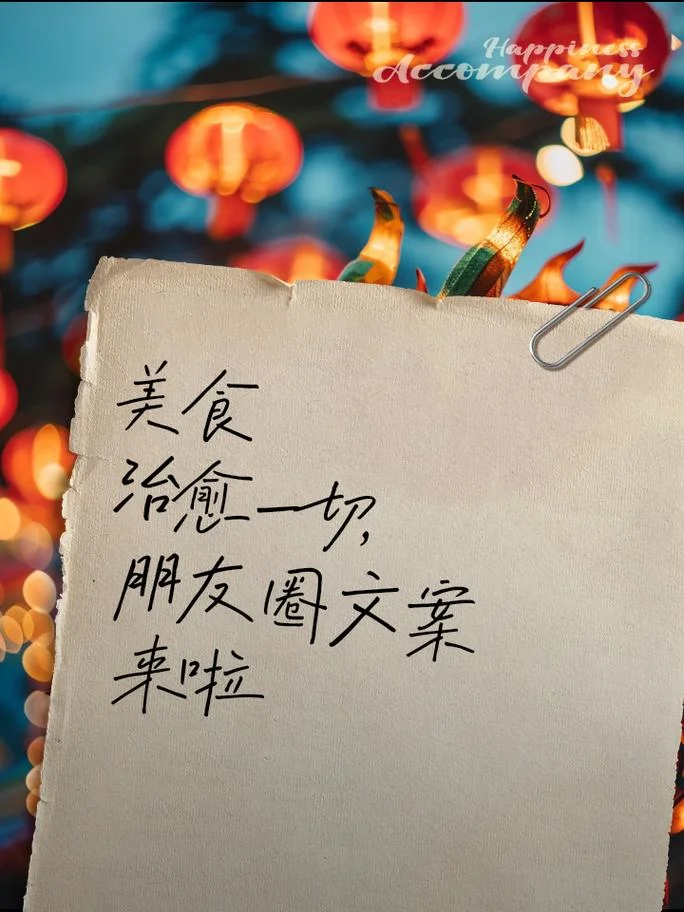 Happiness
Accompany
美食
治愈一切,
朋友圈文案
来啦